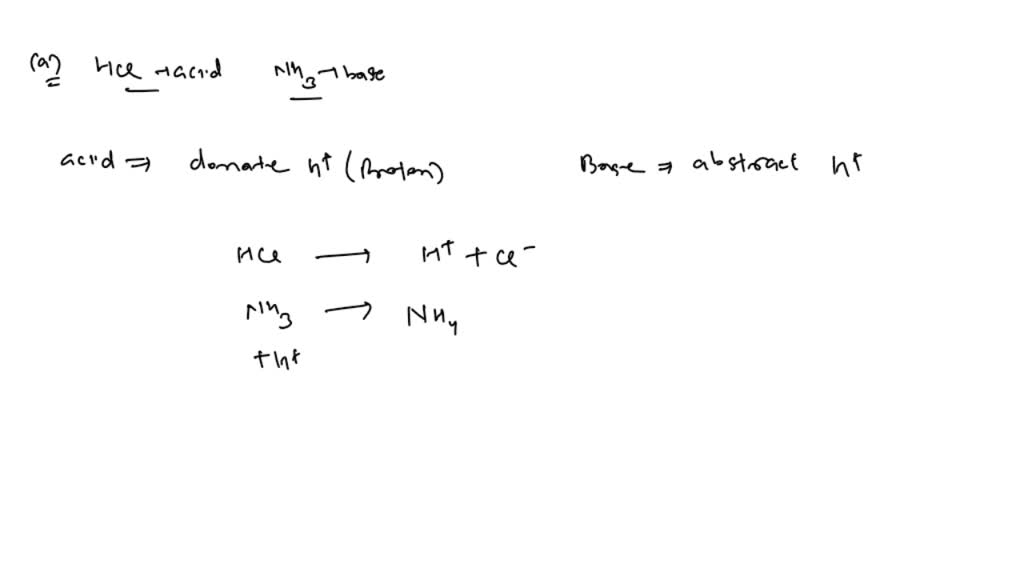 (a) HCl → acid NH3 → base
acid ⇒ donate H+ (Proton) Base ⇒ abstract H+
HCl → H+ + Cl-
NH3 → NH4
+ H+